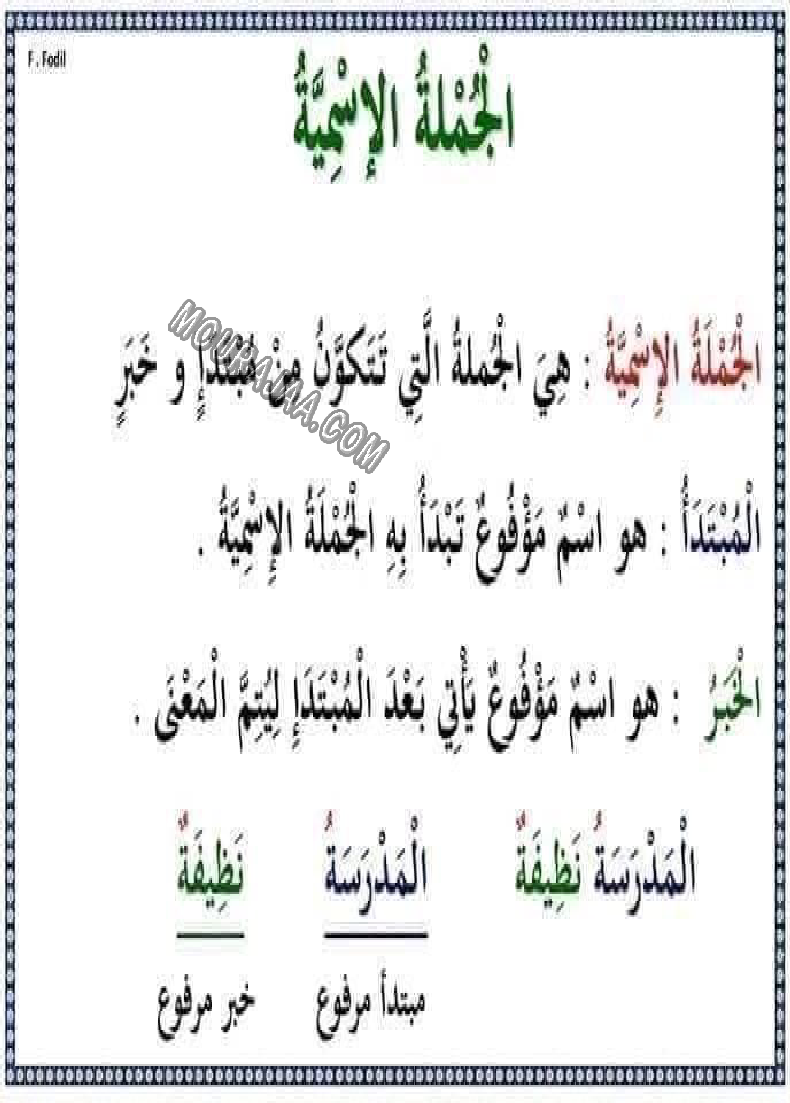 F. Fodil
الْجُمْلةُ الإِسْمِيَّةُ
الْجُمْلَةُ الإِسْمِيَّةُ : هِيَ الْجُملةُ الَّتِي تَتَكوَّنُ مِنْ مُبْتَدَإٍ و خَبَرٍ
MOURAJAA.COM
الْمُبْتَدَأُ : هو اسْمٌ مَرْفُوعٌ تَبْدَأُ بِهِ الْجُمْلَةُ الإِسْمِيَّةُ .
الْخَبَرُ : هو اسْمٌ مَرْفُوعٌ يَأْتِي بَعْدَ الْمُبْتَدَإِ لِيُتِمَّ الْمَعْنَى .
الْمَدْرَسَةُ نَظِيفَةٌ الْمَدْرَسَةُ نَظِيفَةٌ
مبتدأ مرفوع خبر مرفوع